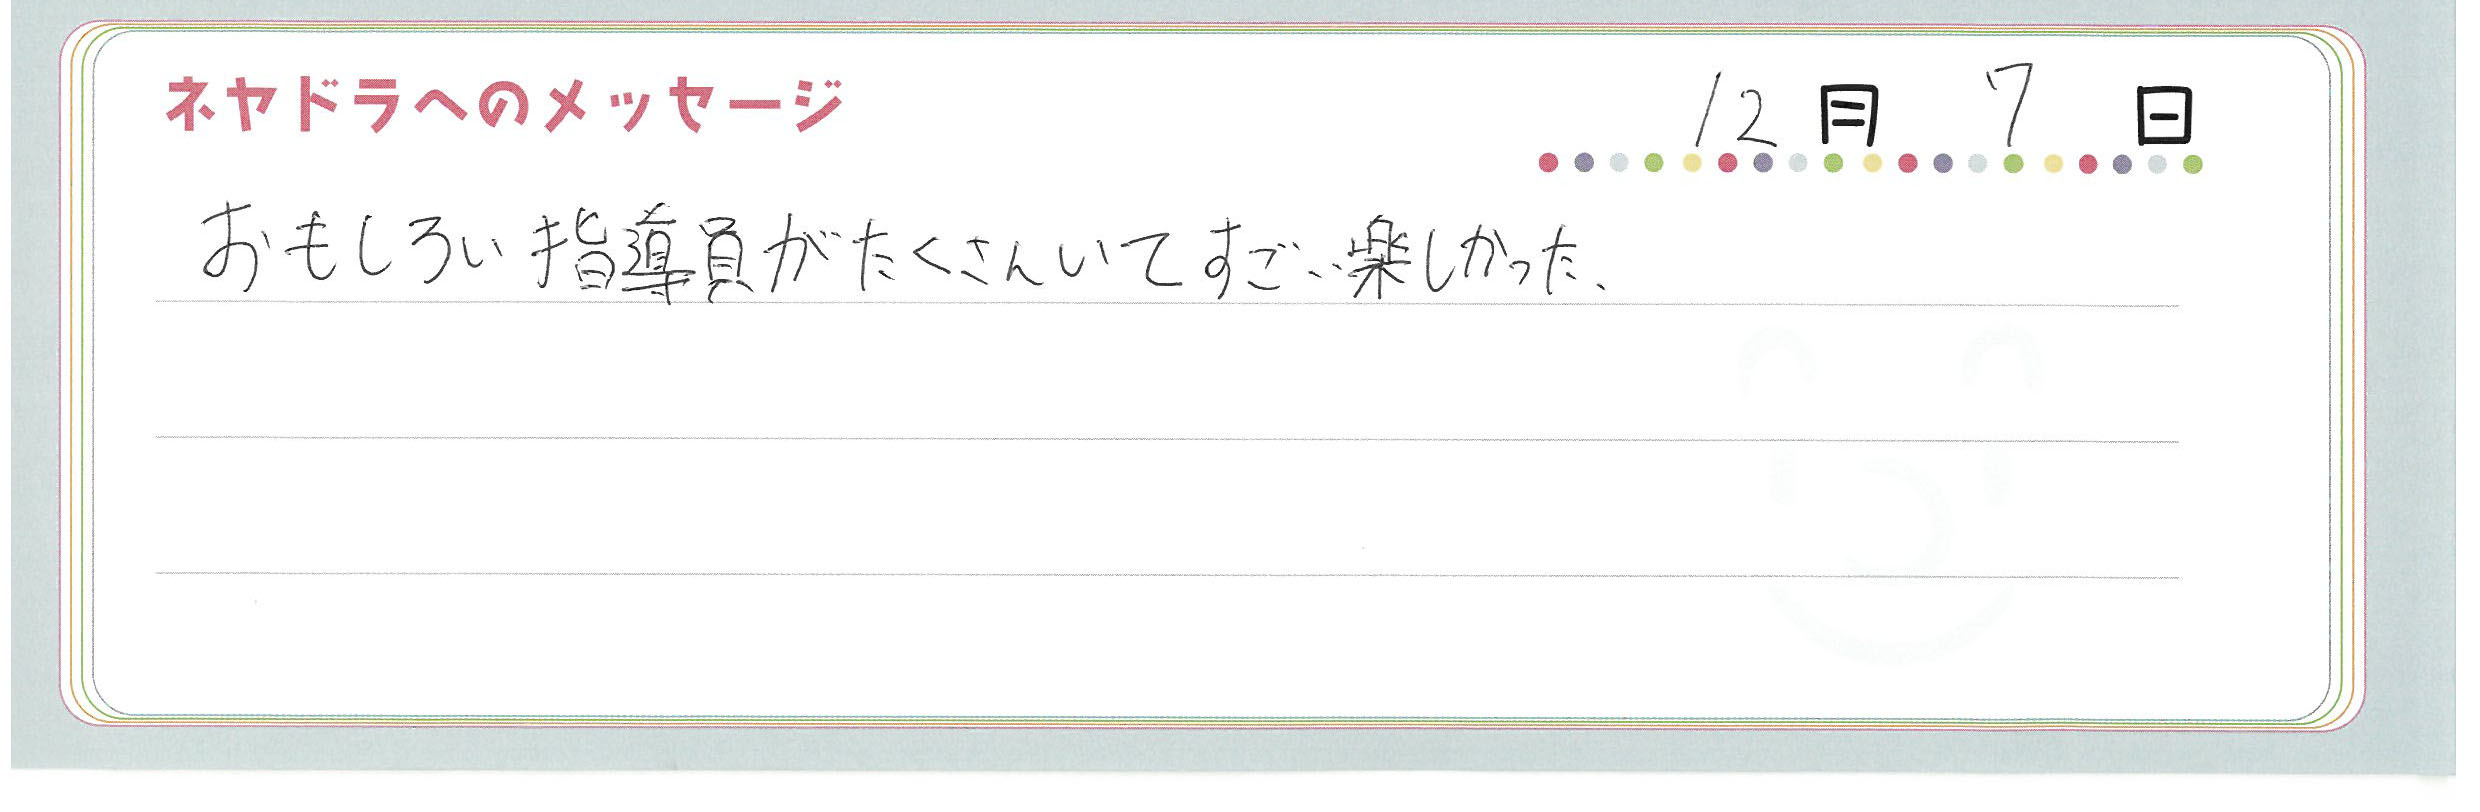 ネヤドラへのメッセージ
12月 7日
おもしろい指導員がたくさんいてすごい楽しかった、